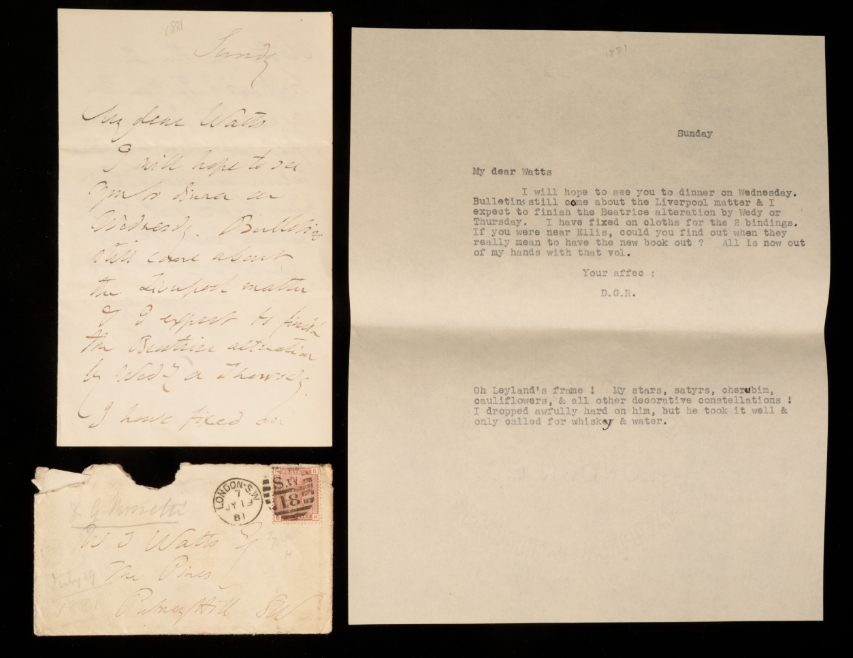 1881
Sunday
My dear Watts
I will hope to see
you to dinner on
Wednesdy. Bulletins
still come about
the Liverpool matter
& I expect to finish
the Beatrice alteration
by Wedy or Thursdy.
I have fixed on
D G Rossetti
LONDON·S.W
7
JY 19
81
S.W
18
W T Watts Esq
The Pines
Putney Hill SW
July 19
1881
1881
Sunday
My dear Watts
I will hope to see you to dinner on Wednesday.
Bulletins still come about the Liverpool matter & I
expect to finish the Beatrice alteration by Wedy or
Thursday. I have fixed on cloths for the 2 bindings.
If you were near Ellis, could you find out when they
really mean to have the new book out ? All is now out
of my hands with that vol.
Your affec :
D.G.R.
Oh Leyland's frame ! My stars, satyrs, cherubim,
cauliflowers, & all other decorative constellations !
I dropped awfully hard on him, but he took it well &
only called for whiskey & water.